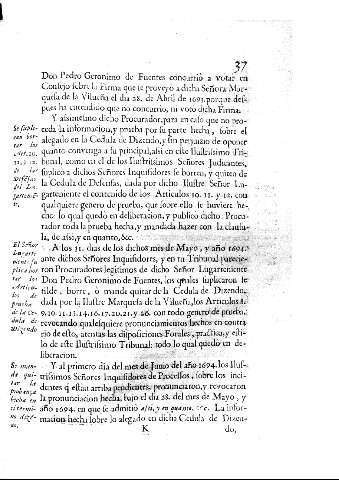 37
Don Pedro Geronimo de Fuentes concurriò a votar en
Consejo sobre la Firma que se proveyò a dicha Señora Mar-
quesa de la Vilueña el dia 28. de Abril de 1693. porque des-
pues ha entendido que no concurriò, ni votò dicha Firma.
Y assimesmo dicho Procurador, para en caso que no pro-
ceda la informacion, y prueba por su parte hecha, sobre el
alegado en la Cedula de Dizendo, y sin perjuizio de oponer
quanto convenga a su principal, assi en este Ilustrissimo Tri-
bunal, como en el de los Ilustrissimos Señores Judicantes,
suplicò a dichos Señores Inquisidores se borren, y quiten de
la Cedula de Defensas, dada por dicho Ilustre Señor Lu-
garteniente el contenido de los Articulos 10. 11. y 12. con
qualquiere genero de prueba, que sobre ello se huviere he-
cho: lo qual quedò en deliberacion, y publicò dicho Procura-
dor toda la prueba hecha, y mandaron hazer con la clausu-
la, de assi, y en quanto, &c.
Se suple-
can bor-
rar los
Artic. 10.
11. y 12.
de las
Defensas
del Lu-
garteniẽ-
te.
A los 31. dias de los dichos mes de Mayo, y año 1694.
ante dichos Señores Inquisidores, y en su Tribunal parecie-
ron Procuradores legitimos de dicho Señor Lugarteniente
Don Pedro Geronimo de Fuentes, los quales suplicaron se
tilde, borre, ò mande quitar de la Cedula de Dizendo,
dada por la Ilustre Marquesa de la Vilueña, los Articulos 8.
9. 10. 11. 13. 14. 16. 17. 20. 21. y 26. con todo genero de prueba,
revocando qualquiere pronunciamientos hechos en contra-
rio de esto, atentas las disposiciones Forales, practica, y esti-
lo de este Ilustrissimo Tribunal: todo lo qual quedò en de-
liberacion.
El Señor
Lugarte-
niente su-
plica bor-
rar los
Articu-
los de
prueba
de la Ce-
dula de
Dizendo
Y al primero dia del mes de Junio del año 1694. los Ilus-
trissimos Señores Inquisidores de Processos, sobre los inci-
dentes q̃ estàn arriba pendientes, pronunciaron, y revocaron
la pronunciacion hecha, bajo el dia 28. del mes de Mayo, y
año 1694. en que se admitiò assi, y en quanto, &c. La infor-
macion hecha sobre lo alegado en dicha Cedula de Dizen-
Se man-
da qui-
tar la
probança
hecha en
el termi-
no dize-
do.
K
do,